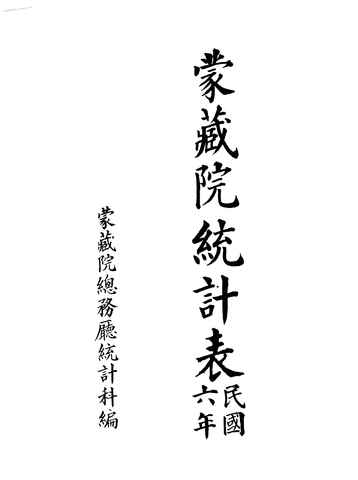 蒙藏院統計表
民國
六年
蒙藏院總務廳統計科編